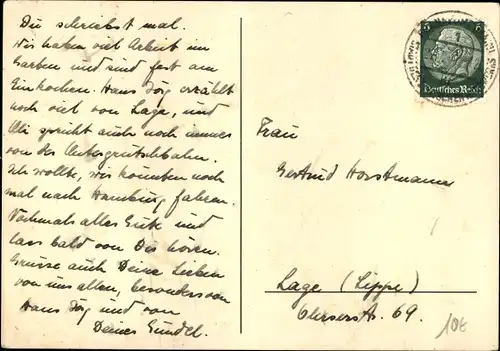 Du schriebst mal.
Wir haben viel Arbeit im
Garten und sind fest am
Einkochen. Hans Jörg erzählt
noch viel von Lage, und
Uli spricht auch noch immer
von der Untergrundbahn.
Ich wollte, wir könnten noch
mal nach Hamburg fahren.
Nochmals alles Gute und
lass bald von Dir hören.
Grüsse auch Deine Lieben
von uns allen, besonders von
Hans Jörg und von
Deiner Gundel.
5 5
Deutsches Reich
Frau
Gertrud Horstmann
Lage (Lippe)
str. 69.
10€